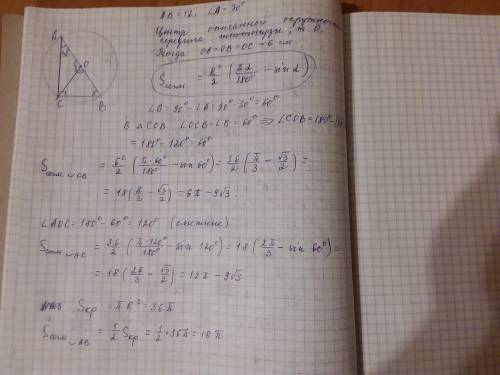 AB=12; ∠A=30°
Центр описанной окружности
середина гипотенузы, т. O.
Тогда OA=OB=OC=6 см.
A
O
C
B
Sсегм = R²/2 (πα/180° - sin α)
∠B=90°-∠A=90°-30°=60°
В △COB ∠OCB=∠B=60° ⇒ ∠COB=180°-
=180°-120°=60°
Sсегм ◡CB = 6²/2 (π·60°/180° - sin 60°) = 36/2 (π/3 - √3/2) =
=18(π/3 - √3/2) = 6π-9√3.
∠AOC=180°-60°=120° (смежные)
Sсегм ◡AC = 36/2 (π·120°/180° - sin 120°) = 18(2π/3 - sin 60°)=
=18(2π/3 - √3/2) = 12π-9√3
Sкр = πR² = 36π
Sсегм ◡AB = 1/2 Sкр = 1/2·36π = 18π